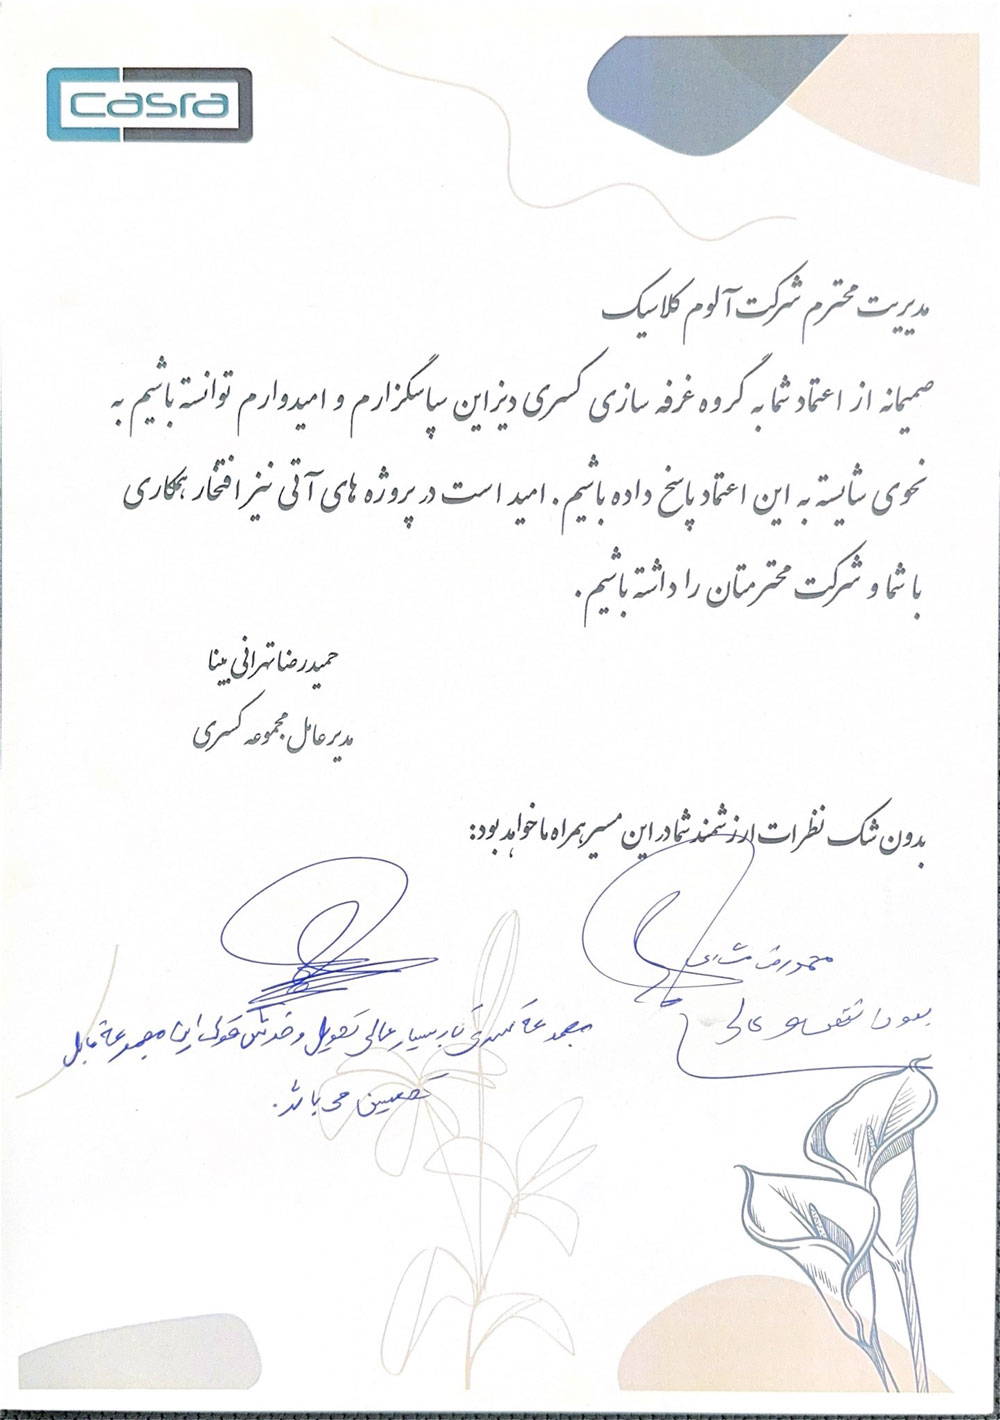 casra
مدیریت محترم شرکت آلوم کلاسیک
صمیمانه از اعتماد شما به گروه غرفه سازی کسری دیزاین سپاسگزارم و امیدوارم توانسته باشیم به
نحوی شایسته به این اعتماد پاسخ داده باشیم. امید است در پروژه های آتی نیز افتخار همکاری
با شما و شرکت محترمتان را داشته باشیم.
حمیدرضا تهرانی بینا
مدیرعامل مجموعه کسری
بدون شک نظرات ارزشمند شما در این مسیر همراه ما خواهد بود:
عالی
مجموعه کسری کار بسیار عالی تحویل و خوش قولی این مجموعه قابل
تحسین می باشد.